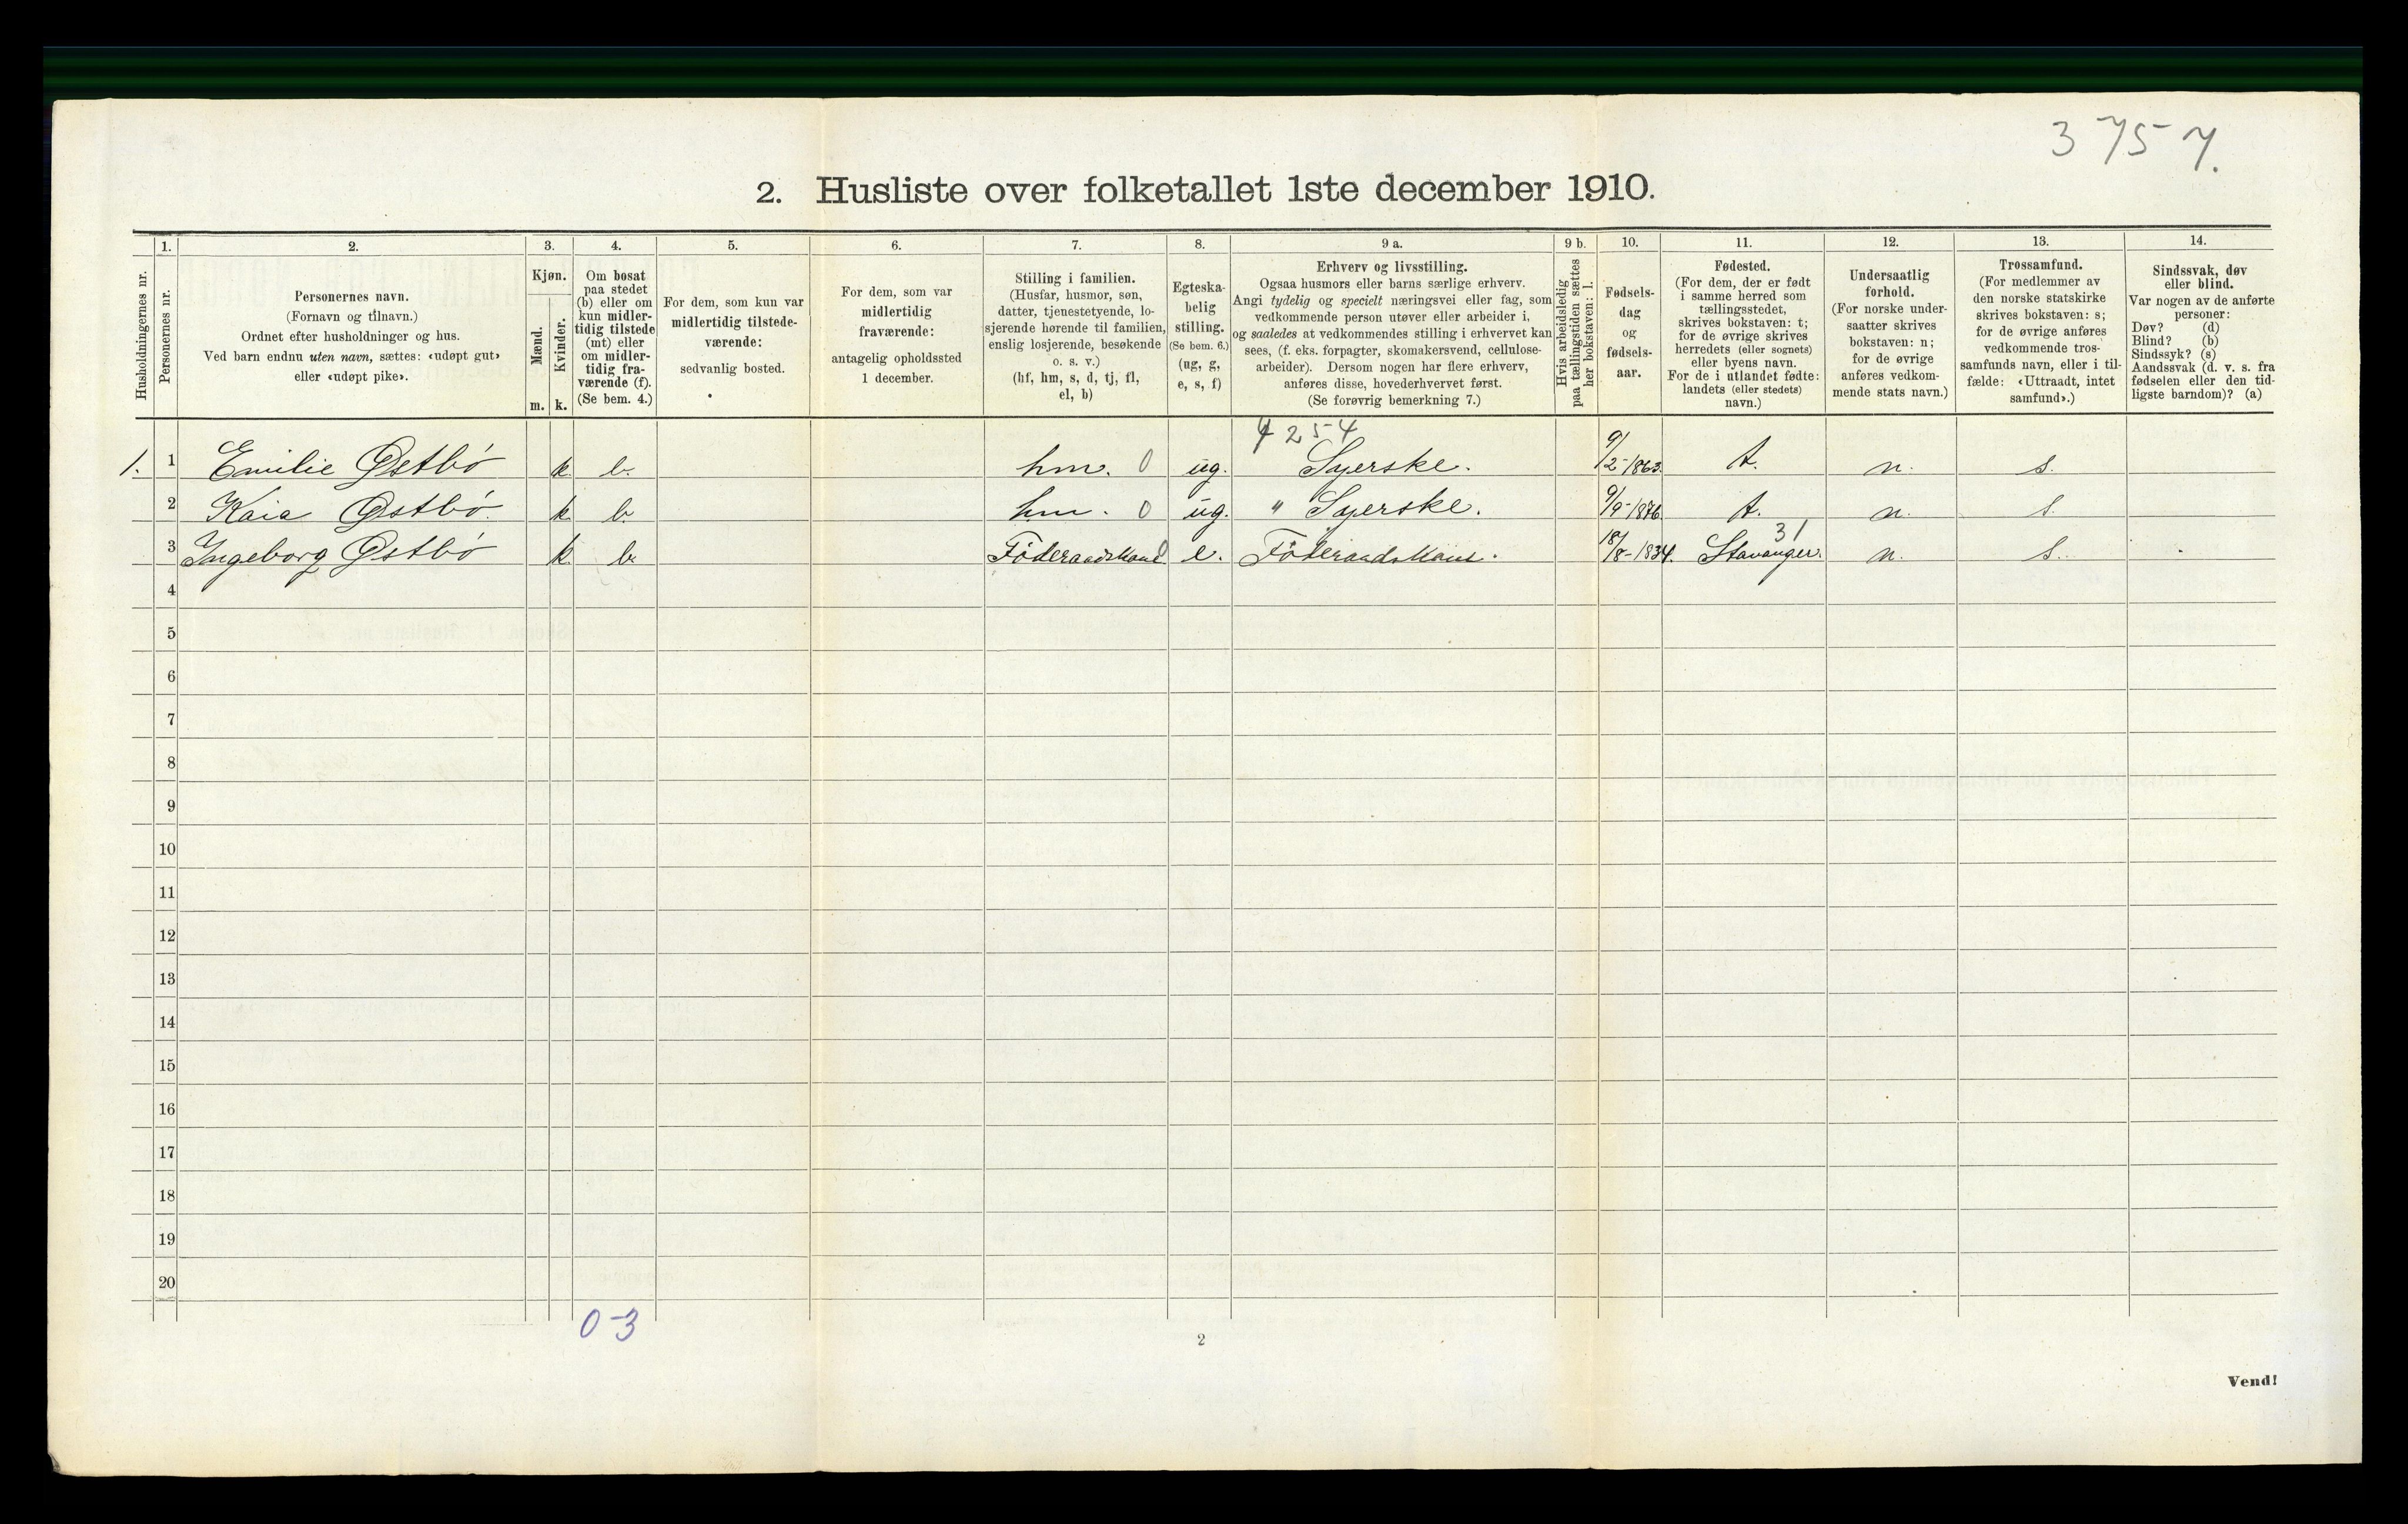 3757.
2. Husliste over folketallet 1ste december 1910.
Husholdningernes nr.
1.
Personernes nr.
2.
Personernes navn.
(Fornavn og tilnavn.)
Ordnet efter husholdninger og hus.
Ved barn endnu uten navn, sættes: «udøpt gut»
eller «udøpt pike».
3.
Kjøn.
Mænd.
Kvinder.
m. k.
4.
Om bosat
paa stedet
(b) eller om
kun midler-
tidig tilstede
(mt) eller
om midler-
tidig fra-
værende (f).
(Se bem. 4.)
5.
For dem, som kun var
midlertidig tilstede-
værende:
sedvanlig bosted.
6.
For dem, som var
midlertidig
fraværende:
antagelig opholdssted
1 december.
7.
Stilling i familien.
(Husfar, husmor, søn,
datter, tjenestetyende, lo-
sjerende hørende til familien,
enslig losjerende, besøkende
o. s. v.)
(hf, hm, s, d, tj, fl,
el, b)
8.
Egteska-
belig
stilling.
(Se bem. 6.)
(ug, g,
e, s, f)
9 a.
Erhverv og livsstilling.
Ogsaa husmors eller barns særlige erhverv.
Angi tydelig og specielt næringsvei eller fag, som
vedkommende person utøver eller arbeider i,
og saaledes at vedkommendes stilling i erhvervet kan
sees, (f. eks. forpagter, skomakersvend, cellulose-
arbeider). Dersom nogen har flere erhverv,
anføres disse, hovederhvervet først.
(Se forøvrig bemerkning 7.)
9 b.
Hvis arbeidsledig
paa tællingstiden sættes
her bokstaven: l.
10.
Fødsels-
dag
og
fødsels-
aar.
11.
Fødested.
(For dem, der er født
i samme herred som
tællingsstedet,
skrives bokstaven: t;
for de øvrige skrives
herredets (eller sognets)
eller byens navn.
For de i utlandet fødte:
landets (eller stedets)
navn.)
12.
Undersaatlig
forhold.
(For norske under-
saatter skrives
bokstaven: n;
for de øvrige
anføres vedkom-
mende stats navn.)
13.
Trossamfund.
(For medlemmer av
den norske statskirke
skrives bokstaven: s;
for de øvrige anføres
vedkommende tros-
samfunds navn, eller i til-
fælde: «Uttraadt, intet
samfund».)
14.
Sindssvak, døv
eller blind.
Var nogen av de anførte
personer:
Døv? (d)
Blind? (b)
Sindssyk? (s)
Aandssvak (d. v. s. fra
fødselen eller den tid-
ligste barndom)? (a)
4254
1. 1 Emilie Østbó k. b. hm. 0 ug. Syerske. 9/2-1863. t. n. s.
2 Kaia Østbó. k. b. hm. 0 ug. " Syerske. 9/9-1876. t. n. s.
31
3 Ingeborg Østbó k. b. Föderaadskone 0 e. Föderaadskone. 18/8-1834. Stavanger. n. s.
4
5
6
7
8
9
10
11
12
13
14
15
16
17
18
19
20
0-3
2
Vend!